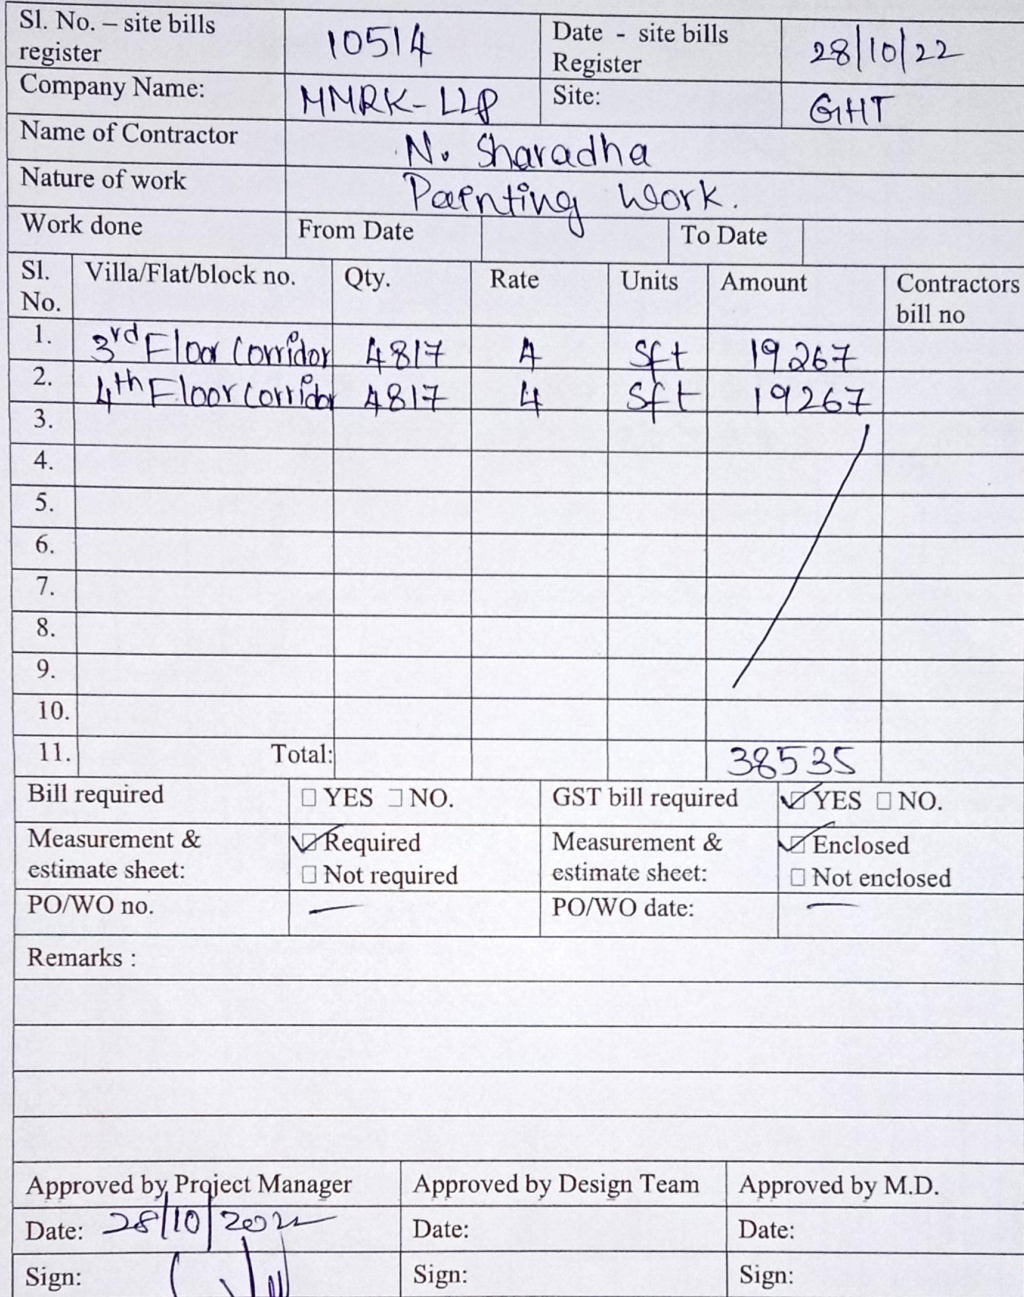 Sl. No. – site bills register 10514 Date - site bills Register 28/10/22
Company Name: MMRK-LLP Site: GHT
Name of Contractor N. Sharadha
Nature of work Painting Work.
Work done From Date To Date
Sl. No. Villa/Flat/block no. Qty. Rate Units Amount Contractors bill no
1. 3rd Floor Corridor 4817 4 Sft 19267
2. 4th Floor Corridor 4817 4 Sft 19267
3.
4.
5.
6.
7.
8.
9.
10.
11. Total: 38535
Bill required ☐ YES ☐ NO. GST bill required ☑ YES ☐ NO.
Measurement & estimate sheet: ☑ Required ☐ Not required Measurement & estimate sheet: ☑ Enclosed ☐ Not enclosed
PO/WO no. — PO/WO date: —
Remarks :
Approved by Project Manager Approved by Design Team Approved by M.D.
Date: 28/10/2022 Date: Date:
Sign: Sign: Sign: